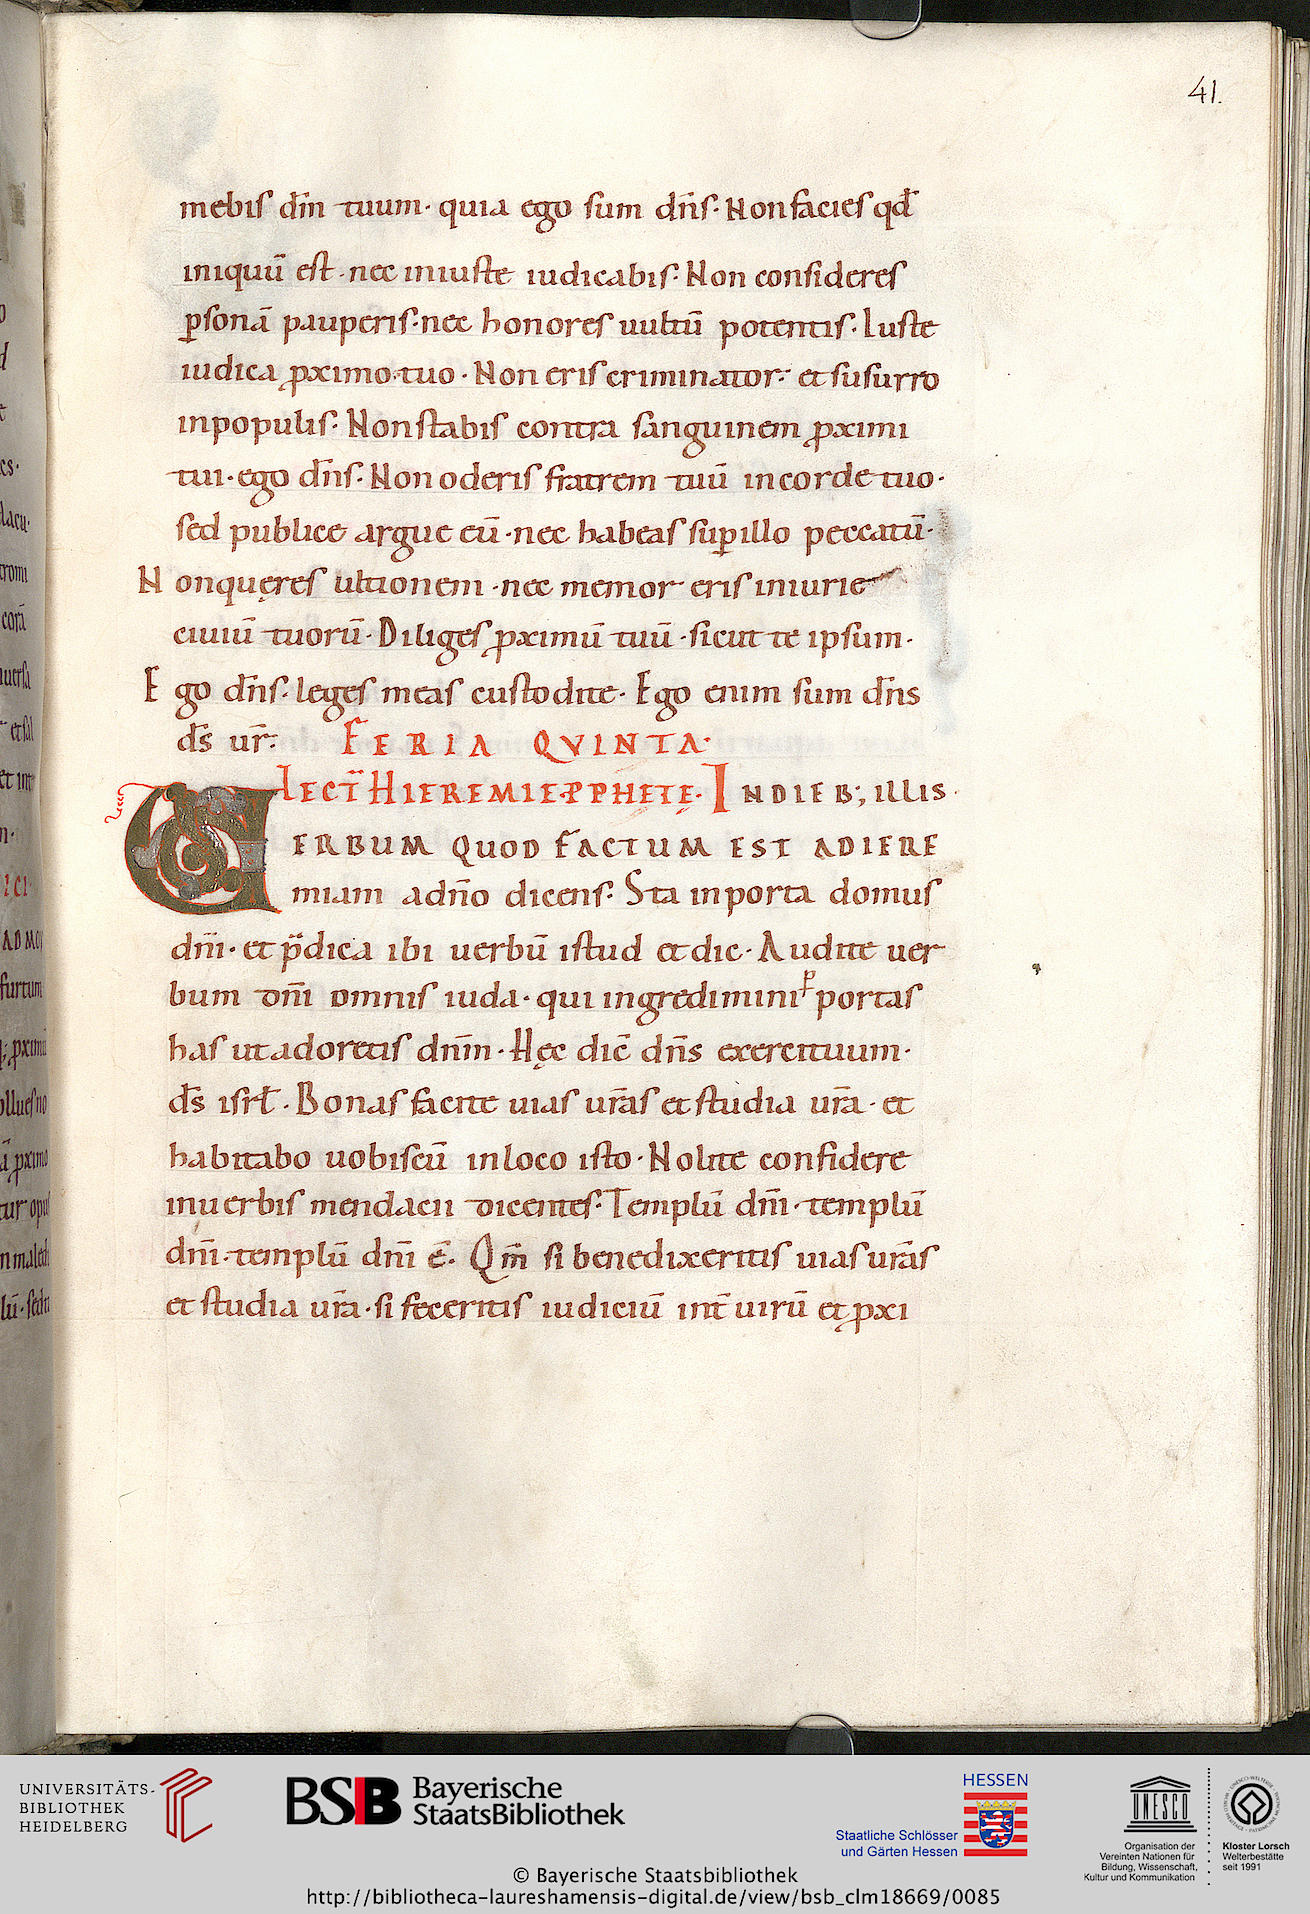 41.
mebis dn̄m tuum· quia ego sum dn̄s· Non facies qd̄
iniquū est· nec iniuste iudicabis· Non consideres
ꝑsonā pauperis· nec honores uultū potentis· Iuste
iudica ꝓximo tuo· Non eris criminator· et susurro
inpopulis· Non stabis contra sanguinem ꝓximi
tui· ego dn̄s· Non oderis fratrem tuū incorde tuo·
sed publice argue eū· nec habeas suꝑillo peccatū·
Non quęres ultionem· nec memor eris iniurie
ciuiū tuorū· Diliges ꝓximū tuū· sicut te ipsum·
Ego dn̄s· leges meas custodite· Ego enim sum dn̄s
ds̄ ur̄·
FERIA QVINTA·
LECT̄ HIEREMIE PPHETE· INDIEB; ILLIS·
ERBUM QUOD FACTUM EST ADIERE
miam adn̄o dicens· Sta inporta domus
dn̄i· et p̄dica ibi uerbū istud et dic· Audite uer
bum dn̄i omnis iuda· qui ingredimini ꝑ portas
has ut adoretis dn̄m· Hęc dic̄ dn̄s exercituum·
ds̄ isrł· Bonas facite uias ur̄as et studia ur̄a· et
habitabo uobiscū inloco isto· Nolite confidere
inuerbis mendacii dicentes· Templū dn̄i· templū
dn̄i· templū dn̄i ē· Qm̄ si benedixeritis uias ur̄as
et studia ur̄a· si feceritis iudiciū int̄ uirū et ꝓxi
UNIVERSITÄTS-
BIBLIOTHEK
HEIDELBERG
BSB Bayerische
StaatsBibliothek
HESSEN
Staatliche Schlösser
und Gärten Hessen
UNESCO
Organisation der
Vereinten Nationen für
Bildung, Wissenschaft,
Kultur und Kommunikation
Kloster Lorsch
Welterbestätte
seit 1991
© Bayerische Staatsbibliothek
http://bibliotheca-laureshamensis-digital.de/view/bsb_clm18669/0085